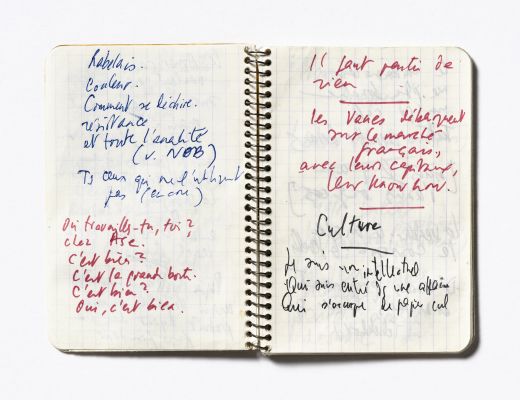 Rabelais.
Couleur.
Comment se déchire.
résistance
et toute l'analité
(v. NOB)
Ts ceux qui ne l'utilisent
pas (encore)
Où travailles-tu, toi ?
chez Ase.
C'est bien ?
C'est la grande boîte.
C'est bien ?
Oui, c'est bien.
Il faut partir de
rien
les Vanes débarquent
sur le marché
français,
avec leurs capitaux,
leur know how.
Culture
Je suis un intellectuel
Qui suis entré ds une affaire
Qui s'occupe de papier cul